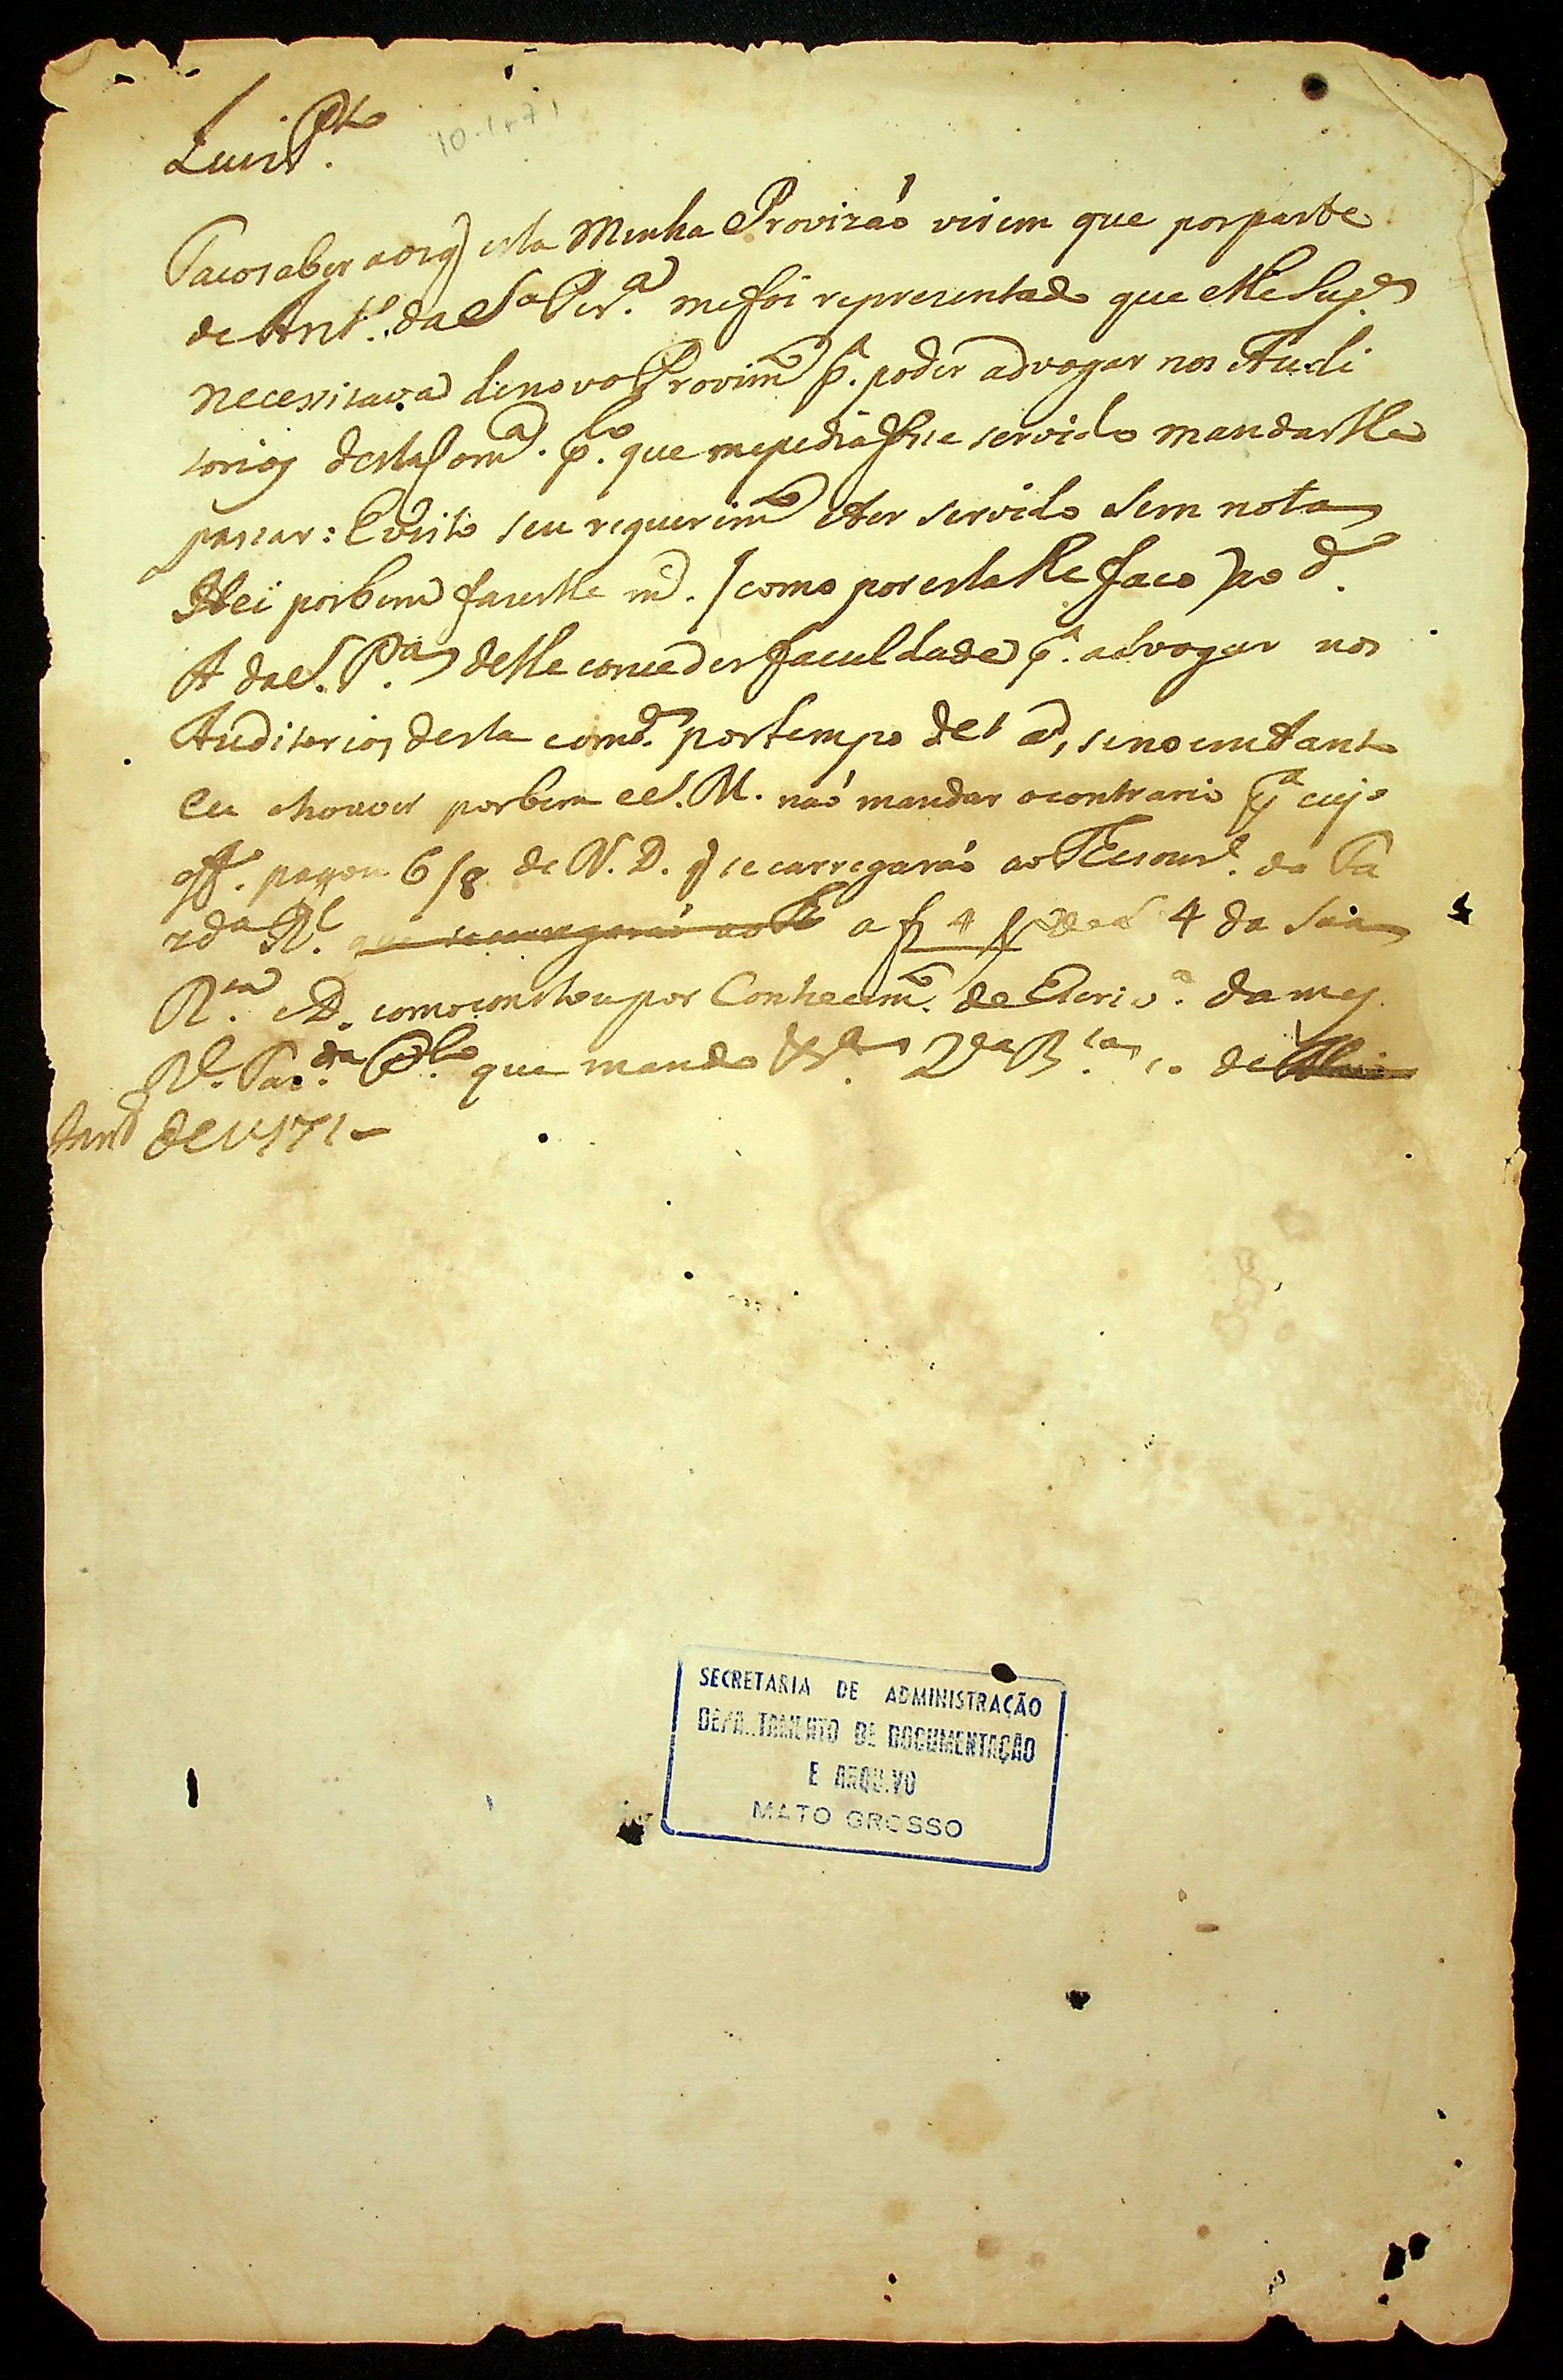 Luis P.to
10-1-71
Faco saber aos q esta Minha Provizaó virem que por parte
de Ant.o da S.a Per.a me foi representado que elle Sup.e
necessitava de novo Provim.to p.a poder advogar nos Audi
torios desta Com.a p.lo que me pedia fosse servido mandarlhe
passar: E visto seu requerim.to e ter servido sem nota
Hei por bem fazerlhe m.ce (como por esta lhe faco) ao d.o
A da S. P.a de lhe conceder faculdade p.a advogar nos
Auditorios desta com.ca por tempo de 1 a, se no emtanto
Eu o houver por bem e S. M. naó mandar o contrario p.a cujo
off.o pagou 6/8 de N. D. q se carregaraó ao Thesour.o da Fa
zda R.l que se carregaraó ao Th a f 4 do L 4 da sua
R.ta e D. como constou por Conhecim.to de Escriv.m da mes
R.l Faz.da P.lo que mando V.a B.la de
Jan.o de 1771
SECRETARIA DE ADMINISTRAÇÃO
DEPARTAMENTO DE DOCUMENTAÇÃO
E ARQUIVO
MATO GROSSO